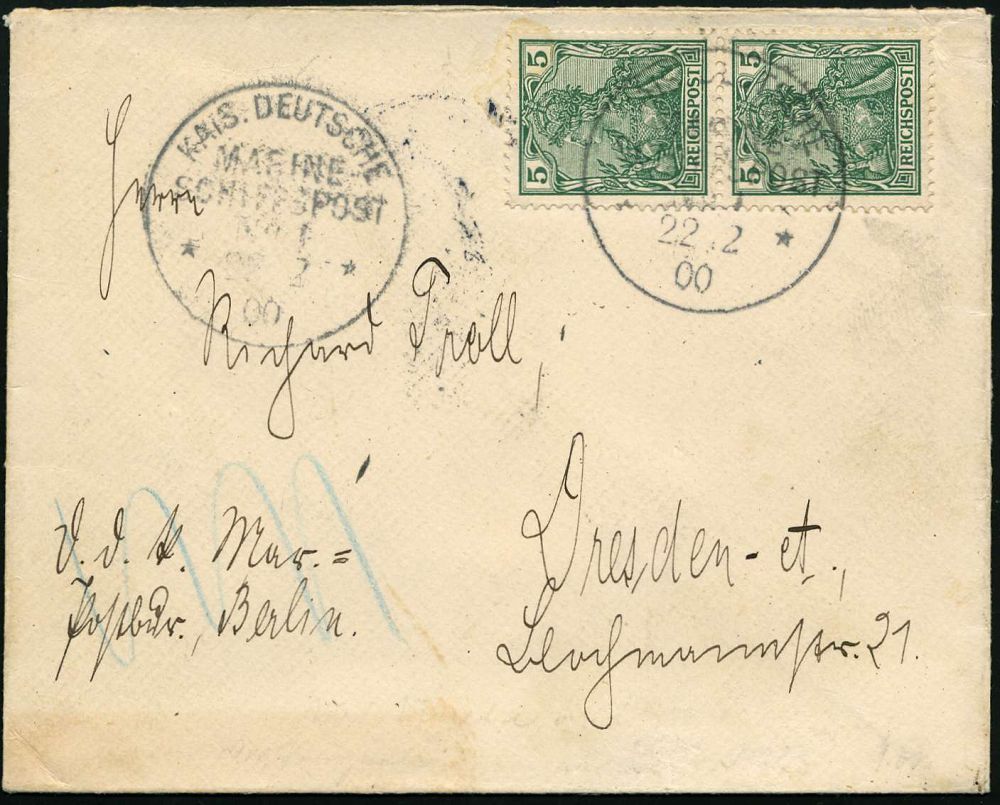 5 5 REICHSPOST
5 5 REICHSPOST
KAIS. DEUTSCHE
MARINE
SCHIFFSPOST
No 1
* 22 12 *
00
22 12 *
00
Herrn
Richard Troll,
d. d. K. Mar.=
Postbür., Berlin.
Dresden-A.,
Blochmannstr. 21.